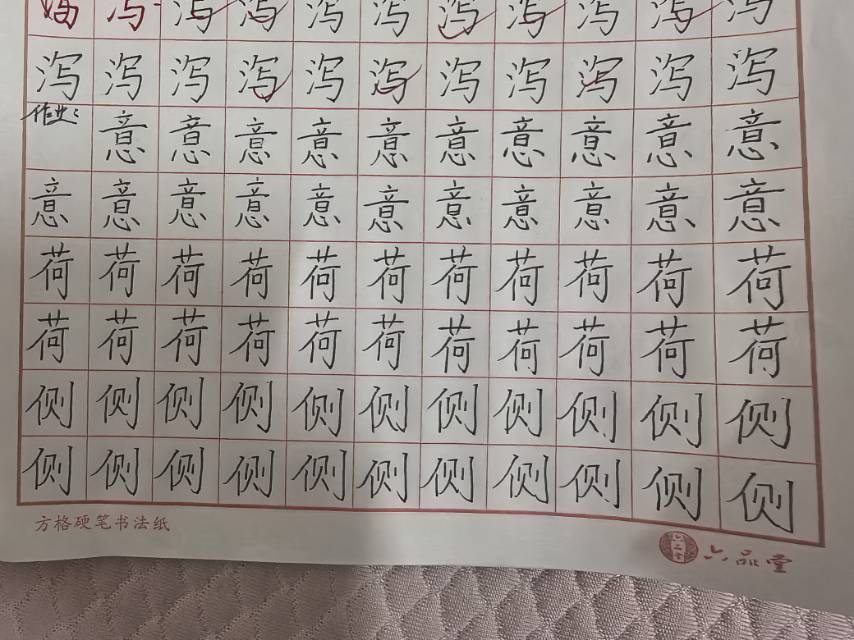 泻泻泻泻泻泻泻泻泻泻
泻泻泻泻泻泻泻泻泻泻泻
作业:意意意意意意意意意意
意意意意意意意意意意意
荷荷荷荷荷荷荷荷荷荷荷
荷荷荷荷荷荷荷荷荷荷荷
侧侧侧侧侧侧侧侧侧侧侧
侧侧侧侧侧侧侧侧侧侧侧
方格硬笔书法纸
六品堂